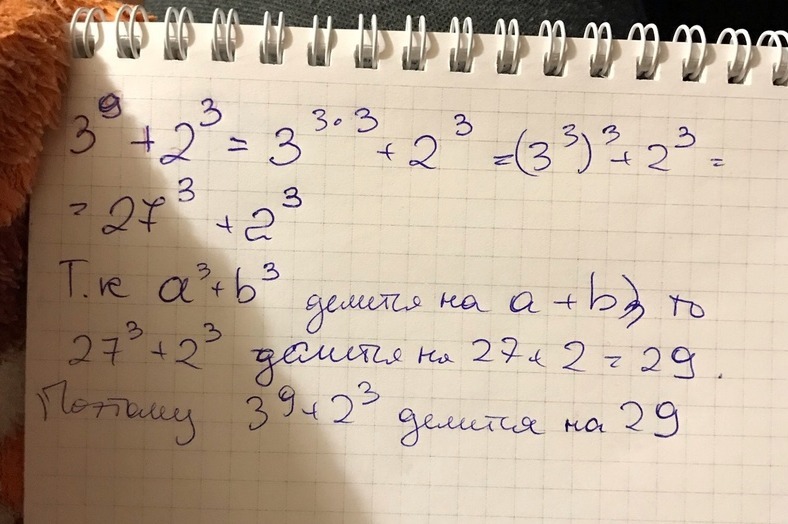 3⁹ + 2³ = 3³·³ + 2³ = (3³)³ + 2³ =
= 27³ + 2³
Т.к a³ + b³ делится на a + b, то
27³ + 2³ делится на 27 + 2 = 29.
Поэтому 3⁹ + 2³ делится на 29